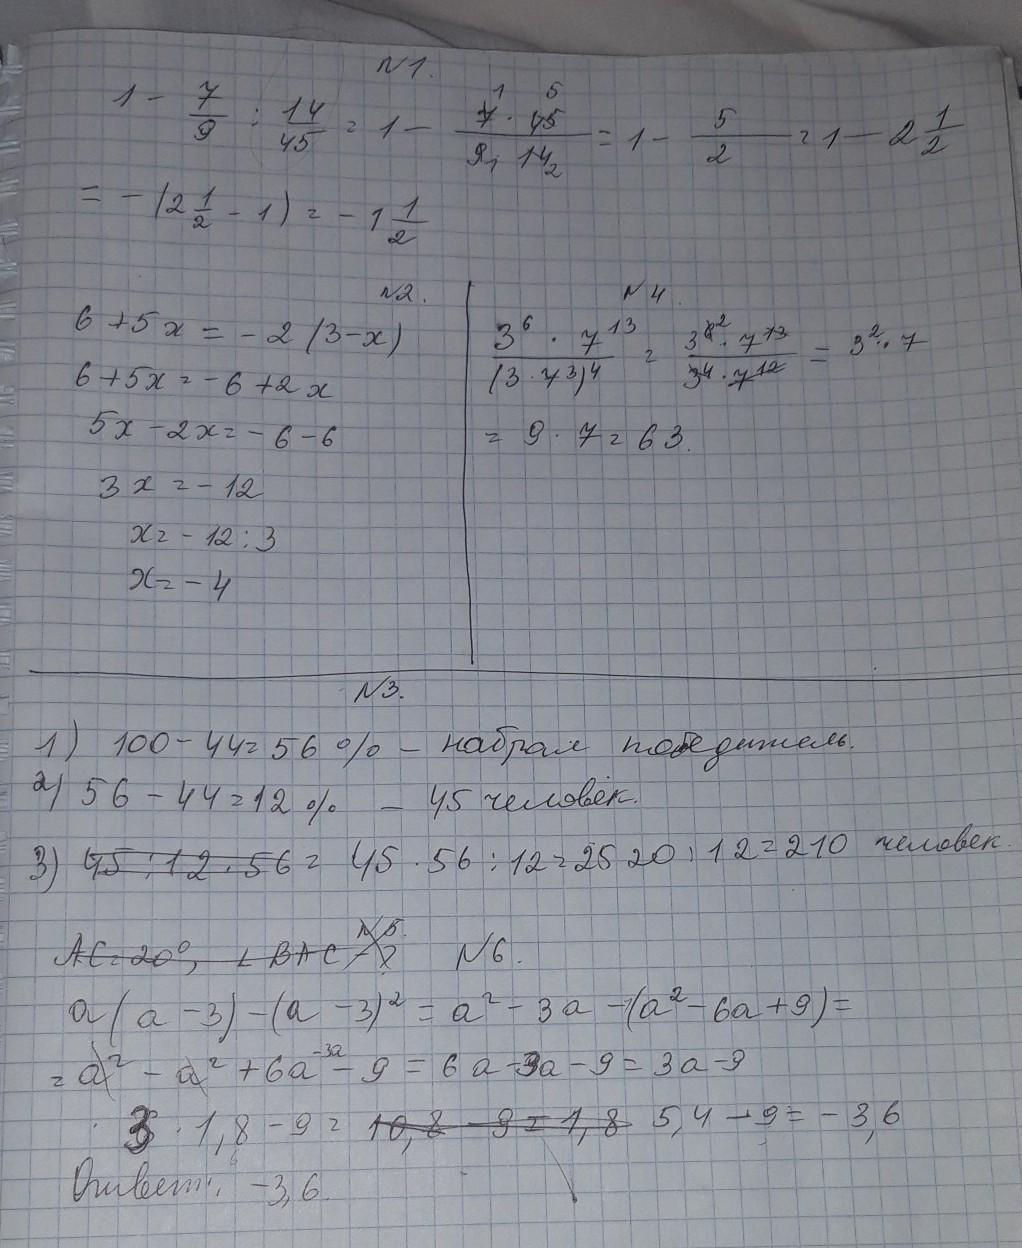 N1.
1 - 7/9 : 14/45 = 1 - (7 · 45)/(9 · 14) = 1 - 5/2 = 1 - 2 1/2
= -(2 1/2 - 1) = -1 1/2
N2.
6 + 5x = -2(3-x)
6 + 5x = -6 + 2x
5x - 2x = -6 - 6
3x = -12
x = -12 : 3
x = -4
N4.
(3^6 · 7^13)/((3 · 7^3)^4) = (3^6 · 7^13)/(3^4 · 7^12) = 3^2 · 7
= 9 · 7 = 63.
N3.
1) 100 - 44 = 56 % - набрал победитель.
2) 56 - 44 = 12 % - 45 человек.
3) 45 : 12 · 56 = 45 · 56 : 12 = 2520 : 12 = 210 человек.
N5.
AC = 20°, ∠BAC - ?
N6.
a(a - 3) - (a - 3)² = a² - 3a - (a² - 6a + 9) =
= a² - a² + 6a -3a - 9 = 6a - 3a - 9 = 3a - 9
3 · 1,8 - 9 = 10,8 - 9 = 1,8 5,4 - 9 = -3,6
Ответ: -3,6.